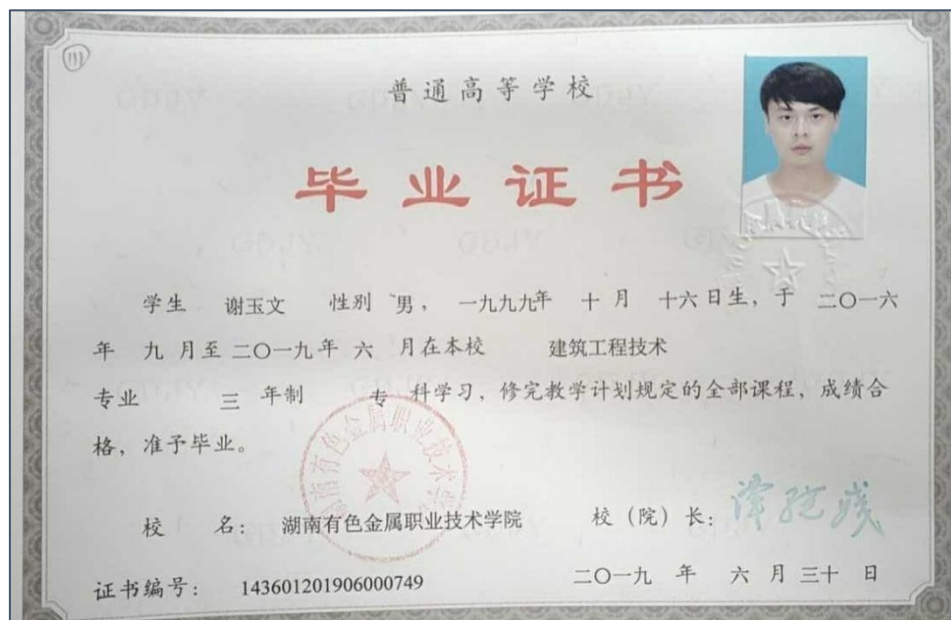 普通高等学校
毕业证书
学生 谢玉文 性别 男, 一九九九年 十月 十六日生, 于 二〇一六
年 九 月至 二〇一九年 六 月在本校 建筑工程技术
专业 三 年制 专 科学习, 修完教学计划规定的全部课程, 成绩合
格, 准予毕业。
湖南有色金属职业技术学院
校 名: 湖南有色金属职业技术学院 校(院)长:
证书编号: 143601201906000749 二〇一九 年 六 月 三十 日